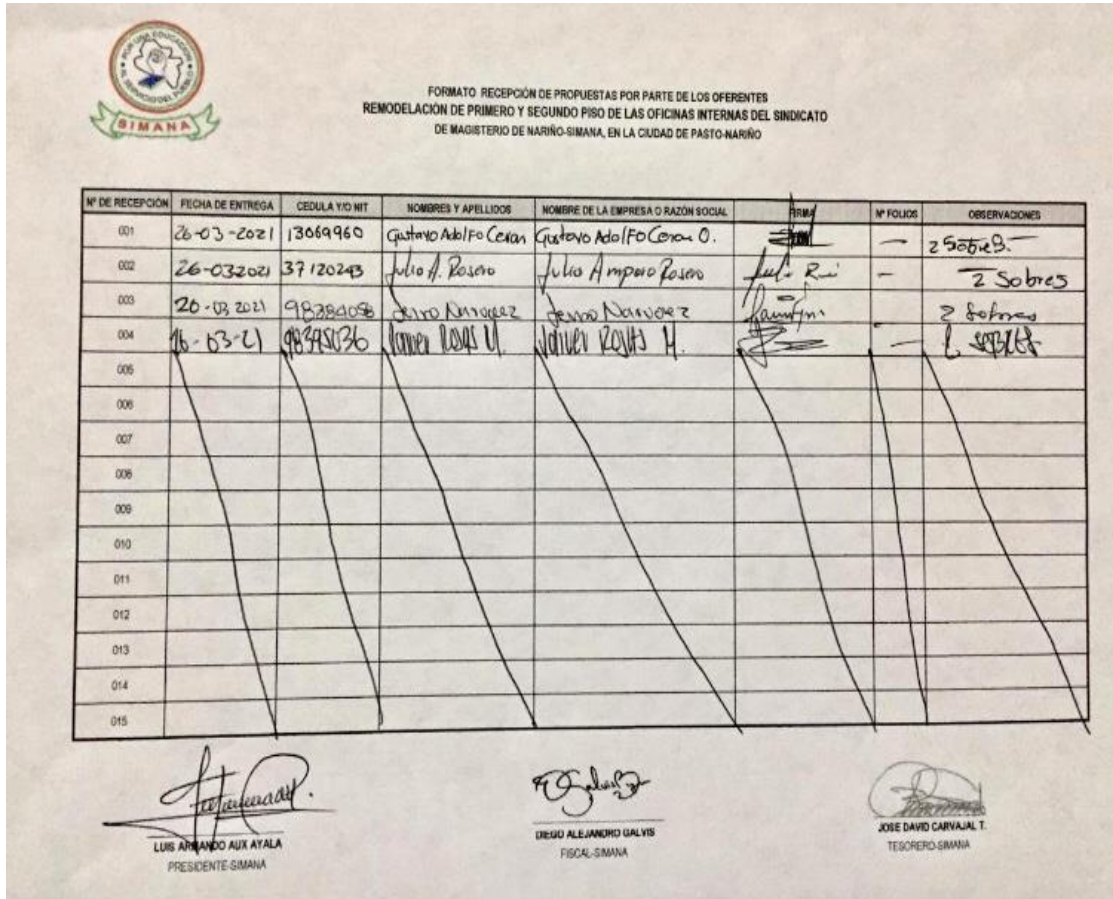 POR UNA EDUCACION AL SERVICIO DEL PUEBLO
SIMANA
FORMATO RECEPCIÓN DE PROPUESTAS POR PARTE DE LOS OFERENTES
REMODELACIÓN DE PRIMERO Y SEGUNDO PISO DE LAS OFICINAS INTERNAS DEL SINDICATO
DE MAGISTERIO DE NARIÑO-SIMANA, EN LA CIUDAD DE PASTO-NARIÑO
Nº DE RECEPCIÓN FECHA DE ENTREGA CEDULA Y/O NIT NOMBRES Y APELLIDOS NOMBRE DE LA EMPRESA O RAZÓN SOCIAL FIRMA Nº FOLIOS OBSERVACIONES
001 26-03-2021 13069960 Gustavo Adolfo Ceron Gustavo Adolfo Ceron O. — 2 Sobres.
002 26-032021 37120243 Julio A. Rosero Julio Amparo Rosero - 2 Sobres
003 26-03 2021 98384056 Narvaez Narvaez - 2 Sobres
004 26-03-21 98395036 Javier Rojas M. Javier Rojas M. —
005
006
007
008
009
010
011
012
013
014
015
LUIS ARMANDO AUX AYALA
PRESIDENTE-SIMANA
DIEGO ALEJANDRO GALVIS
FISCAL-SIMANA
JOSE DAVID CARVAJAL T.
TESORERO-SIMANA